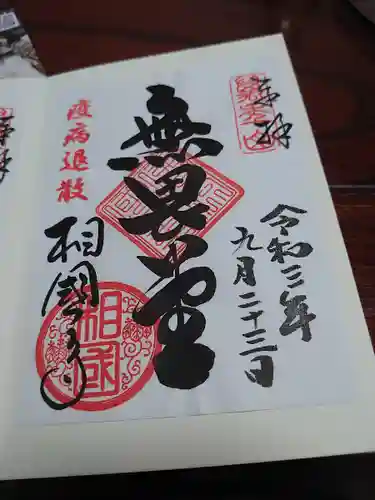 奉拝
令和三年
九月二十三日
無畏堂
疫病退散
相国寺
相国
奉拝